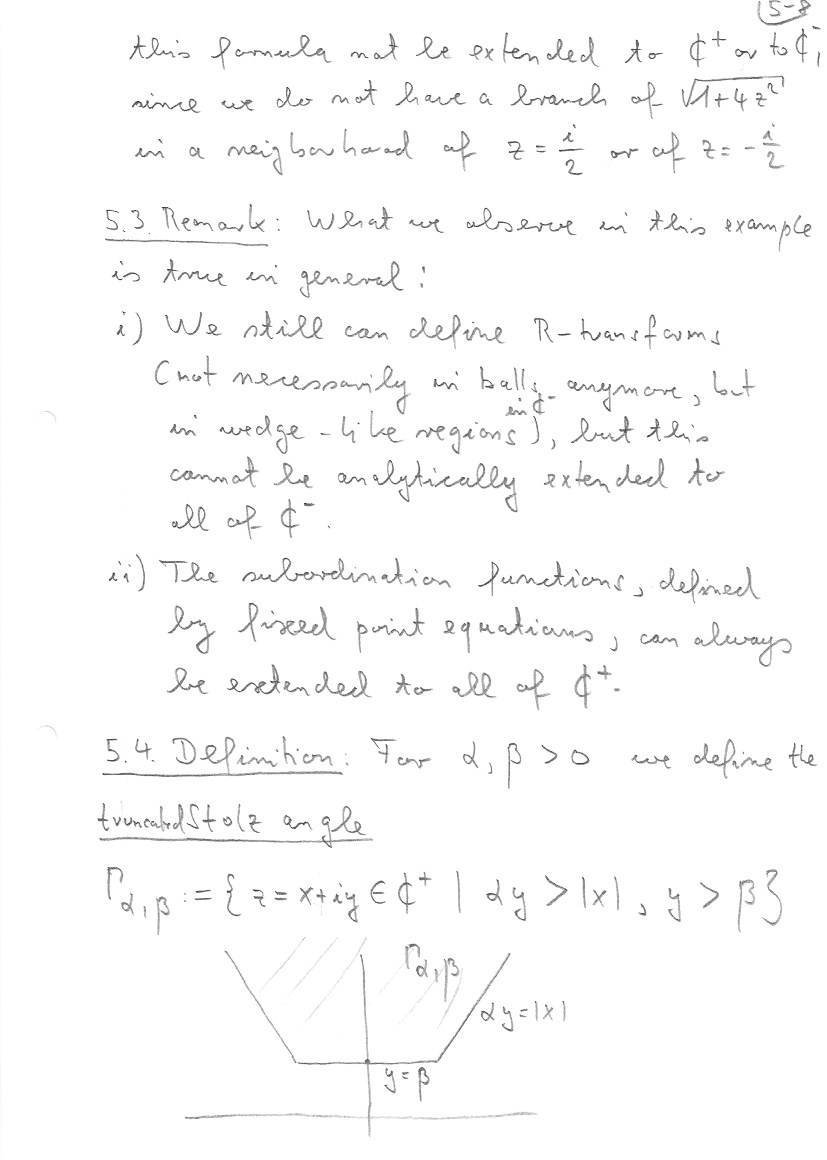 5-8
this formula not be extended to ℂ⁺ or to ℂ⁻,
since we do not have a branch of √(1+4z²)
in a neigborhood of z = i/2 or of z = -i/2
5.3. Remark: What we observe in this example
is true in general:
i) We still can define R-transforms
(not necessarily in balls anymore, but
in wedge-like regions in ℂ⁻), but this
cannot be analytically extended to
all of ℂ⁻.
ii) The subordination functions, defined
by fixed point equations, can always
be extended to all of ℂ⁺.
5.4. Definition: For α, β > 0 we define the
truncated Stolz angle
Γα,β := { z = x+iy ∈ ℂ⁺ | αy > |x|, y > β}
Γα,β
αy = |x|
y = β